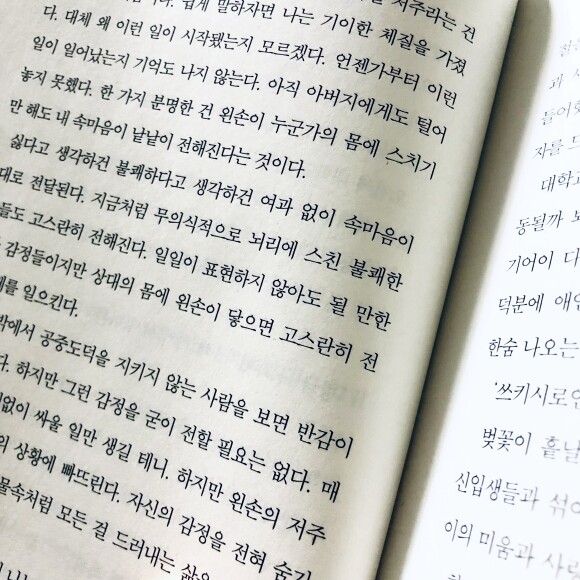 저주라는 건
쉽게 말하자면 나는 기이한 체질을 가졌
다. 대체 왜 이런 일이 시작됐는지 모르겠다. 언젠가부터 이런
일이 일어났는지 기억도 나지 않는다. 아직 아버지에게도 털어
놓지 못했다. 한 가지 분명한 건 왼손이 누군가의 몸에 스치기
만 해도 내 속마음이 낱낱이 전해진다는 것이다.
싫다고 생각하건 불쾌하다고 생각하건 여과 없이 속마음이
대로 전달된다. 지금처럼 무의식적으로 뇌리에 스친 불쾌한
들도 고스란히 전해진다. 일일이 표현하지 않아도 될 만한
감정들이지만 상대의 몸에 왼손이 닿으면 고스란히 전
를 일으킨다.
밖에서 공중도덕을 지키지 않는 사람을 보면 반감이
다. 하지만 그런 감정을 굳이 전할 필요는 없다. 매
없이 싸울 일만 생길 테니. 하지만 왼손의 저주
의 상황에 빠뜨린다. 자신의 감정을 전혀 숨기
물속처럼 모든 걸 드러내는 삶
과
들어
자를
대학교
동될까
기어이 다
덕분에 애
한숨 나오는
'쓰키시로
벚꽃이 흩날
신입생들과 섞
이의 미움과 사